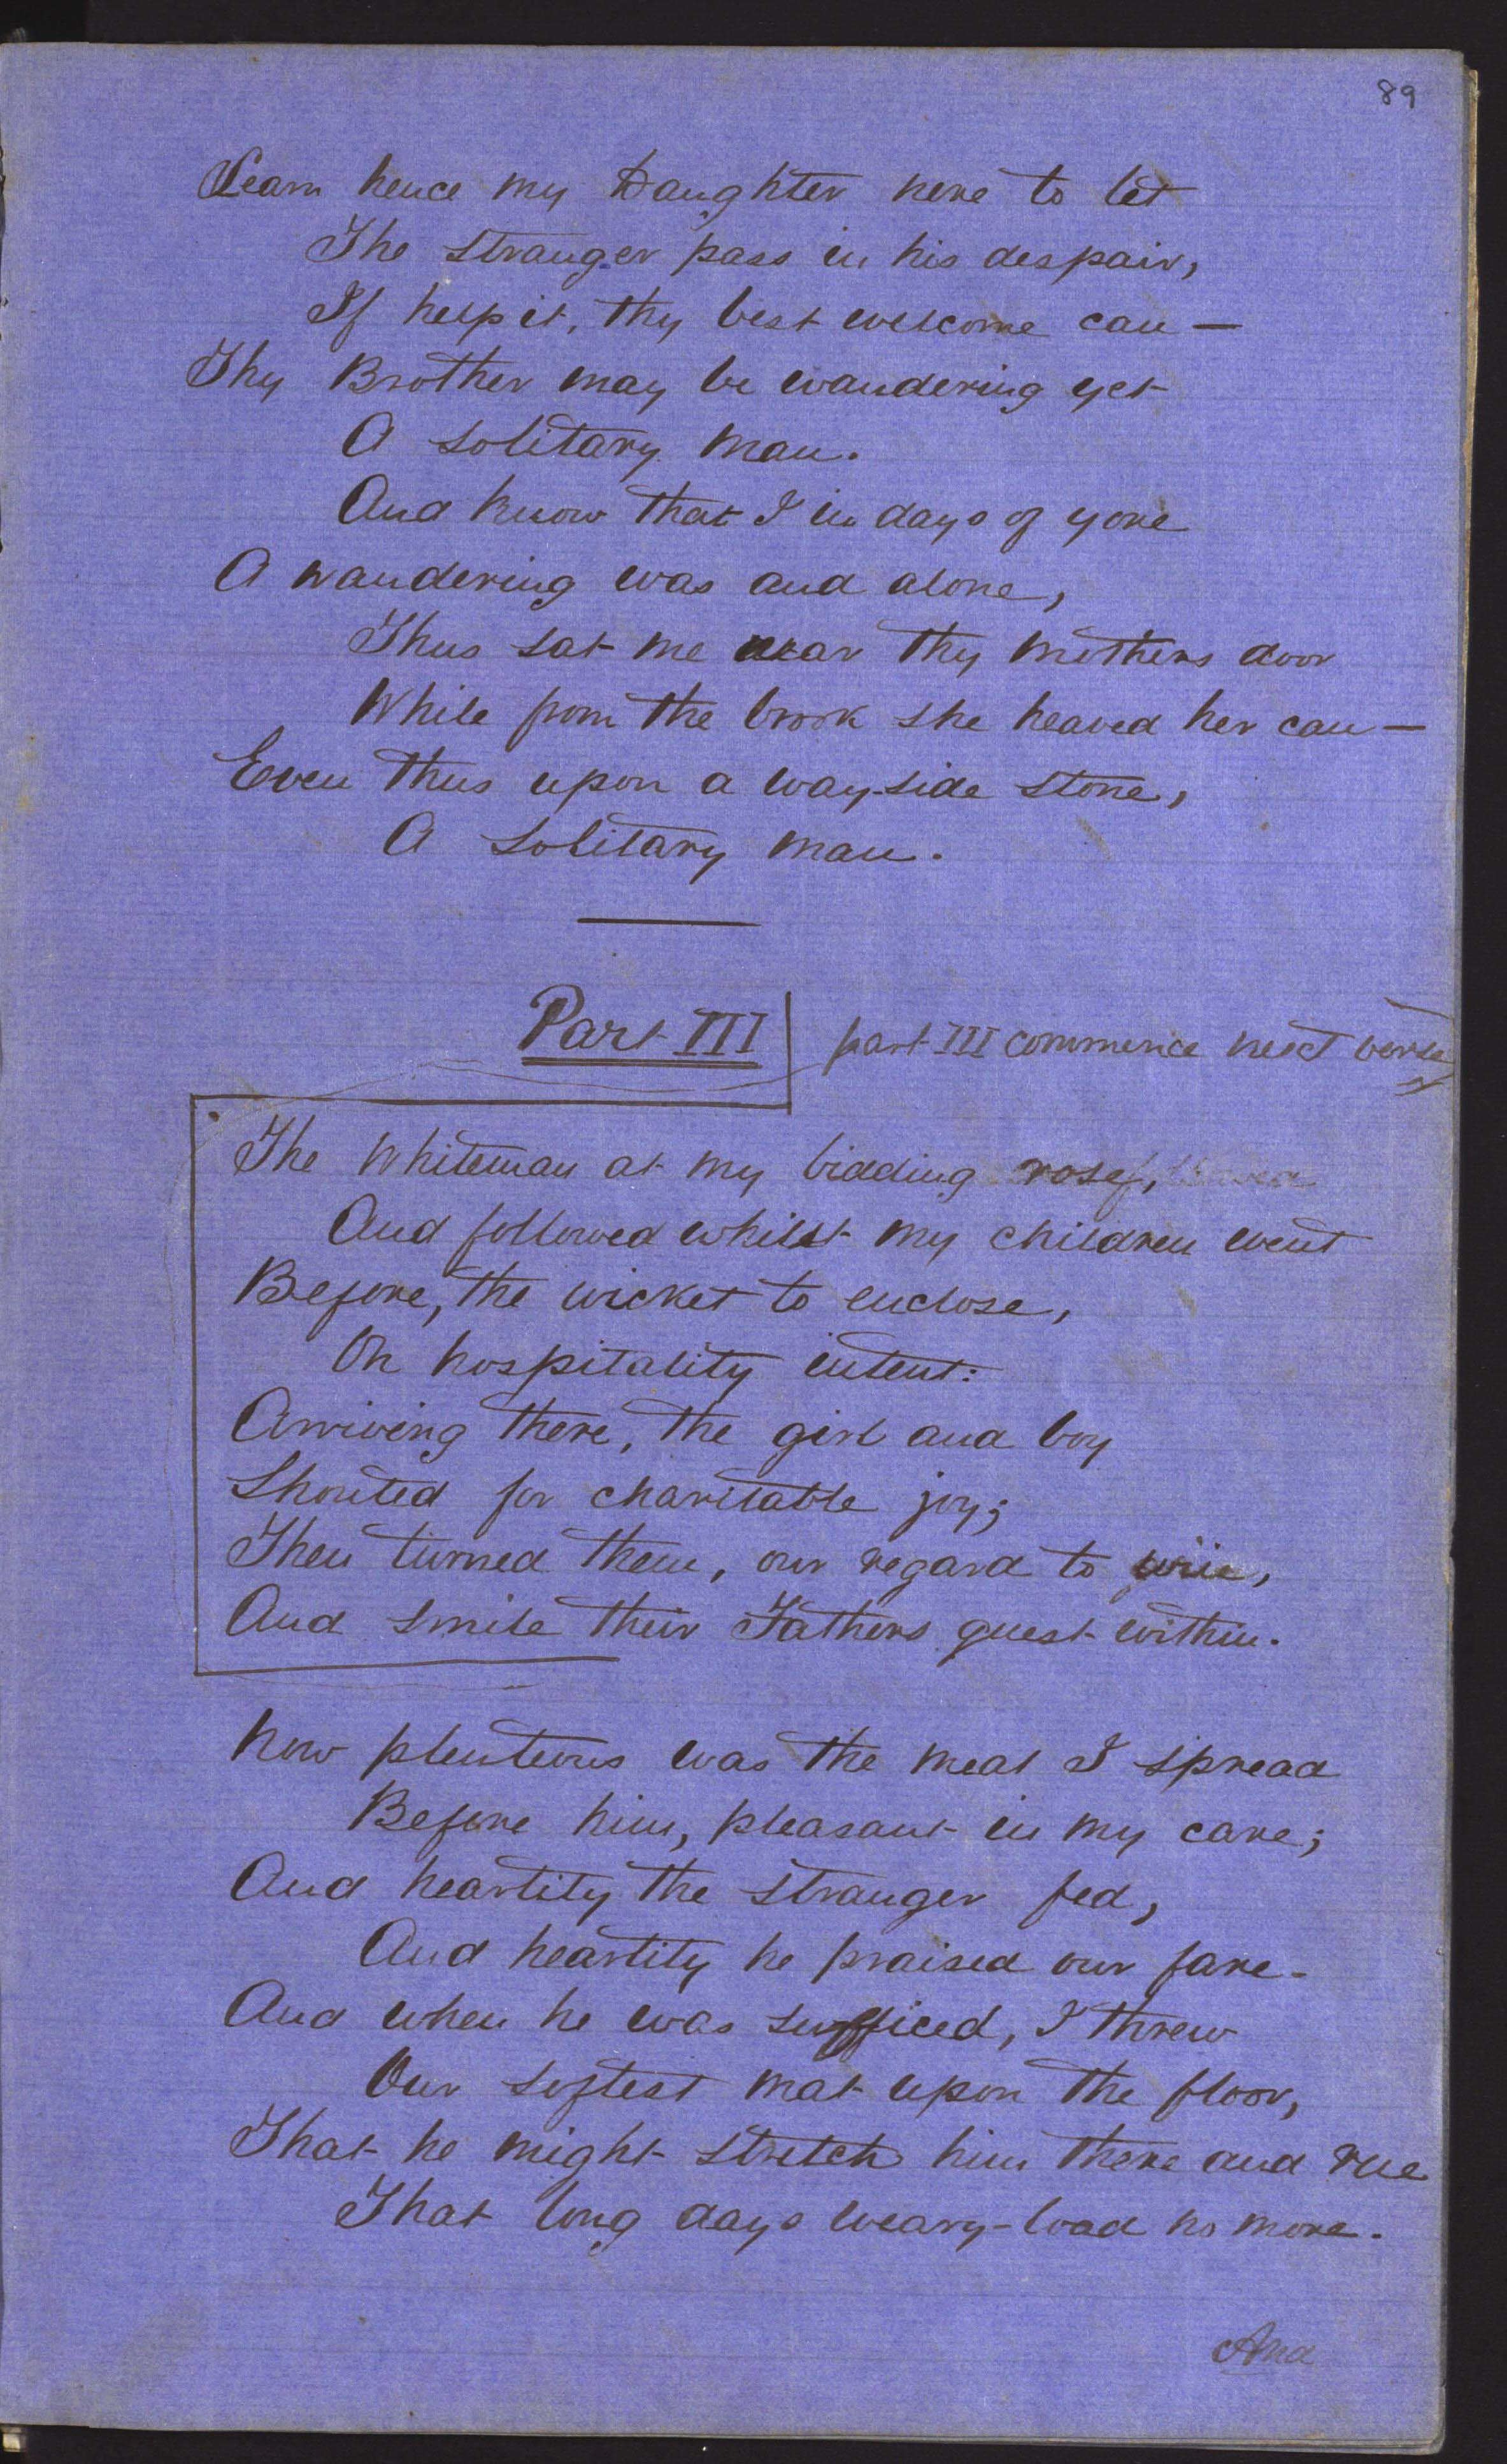 89
Learn hence my Daughter nere to let
The stranger pass in his despair,
If help it, thy best welcome can —
Thy Brother may be wandering yet
A solitary man.
And know that I in days of yore
A wandering was and alone,
Thus sat me near thy mothers door
While from the brook she heaved her can —
Even thus upon a way-side stone,
A solitary man.
Part III
part III commence next verse
The Whiteman at my bidding rose,
And followed whilst my children went
Before, the wicket to enclose,
On hospitality intent:
Arriving there, the girl and boy
Shouted for charitable joy;
Then turned them, our regard to win,
And smile their Fathers guest within.
Now plenteous was the meal I spread
Before him, pleasant in my care;
And heartily the stranger fed,
And heartily he praised our fare -
And when he was sufficed, I threw
Our softest mat upon the floor,
That he might stretch him there and rue
That long days weary-load no more.
And